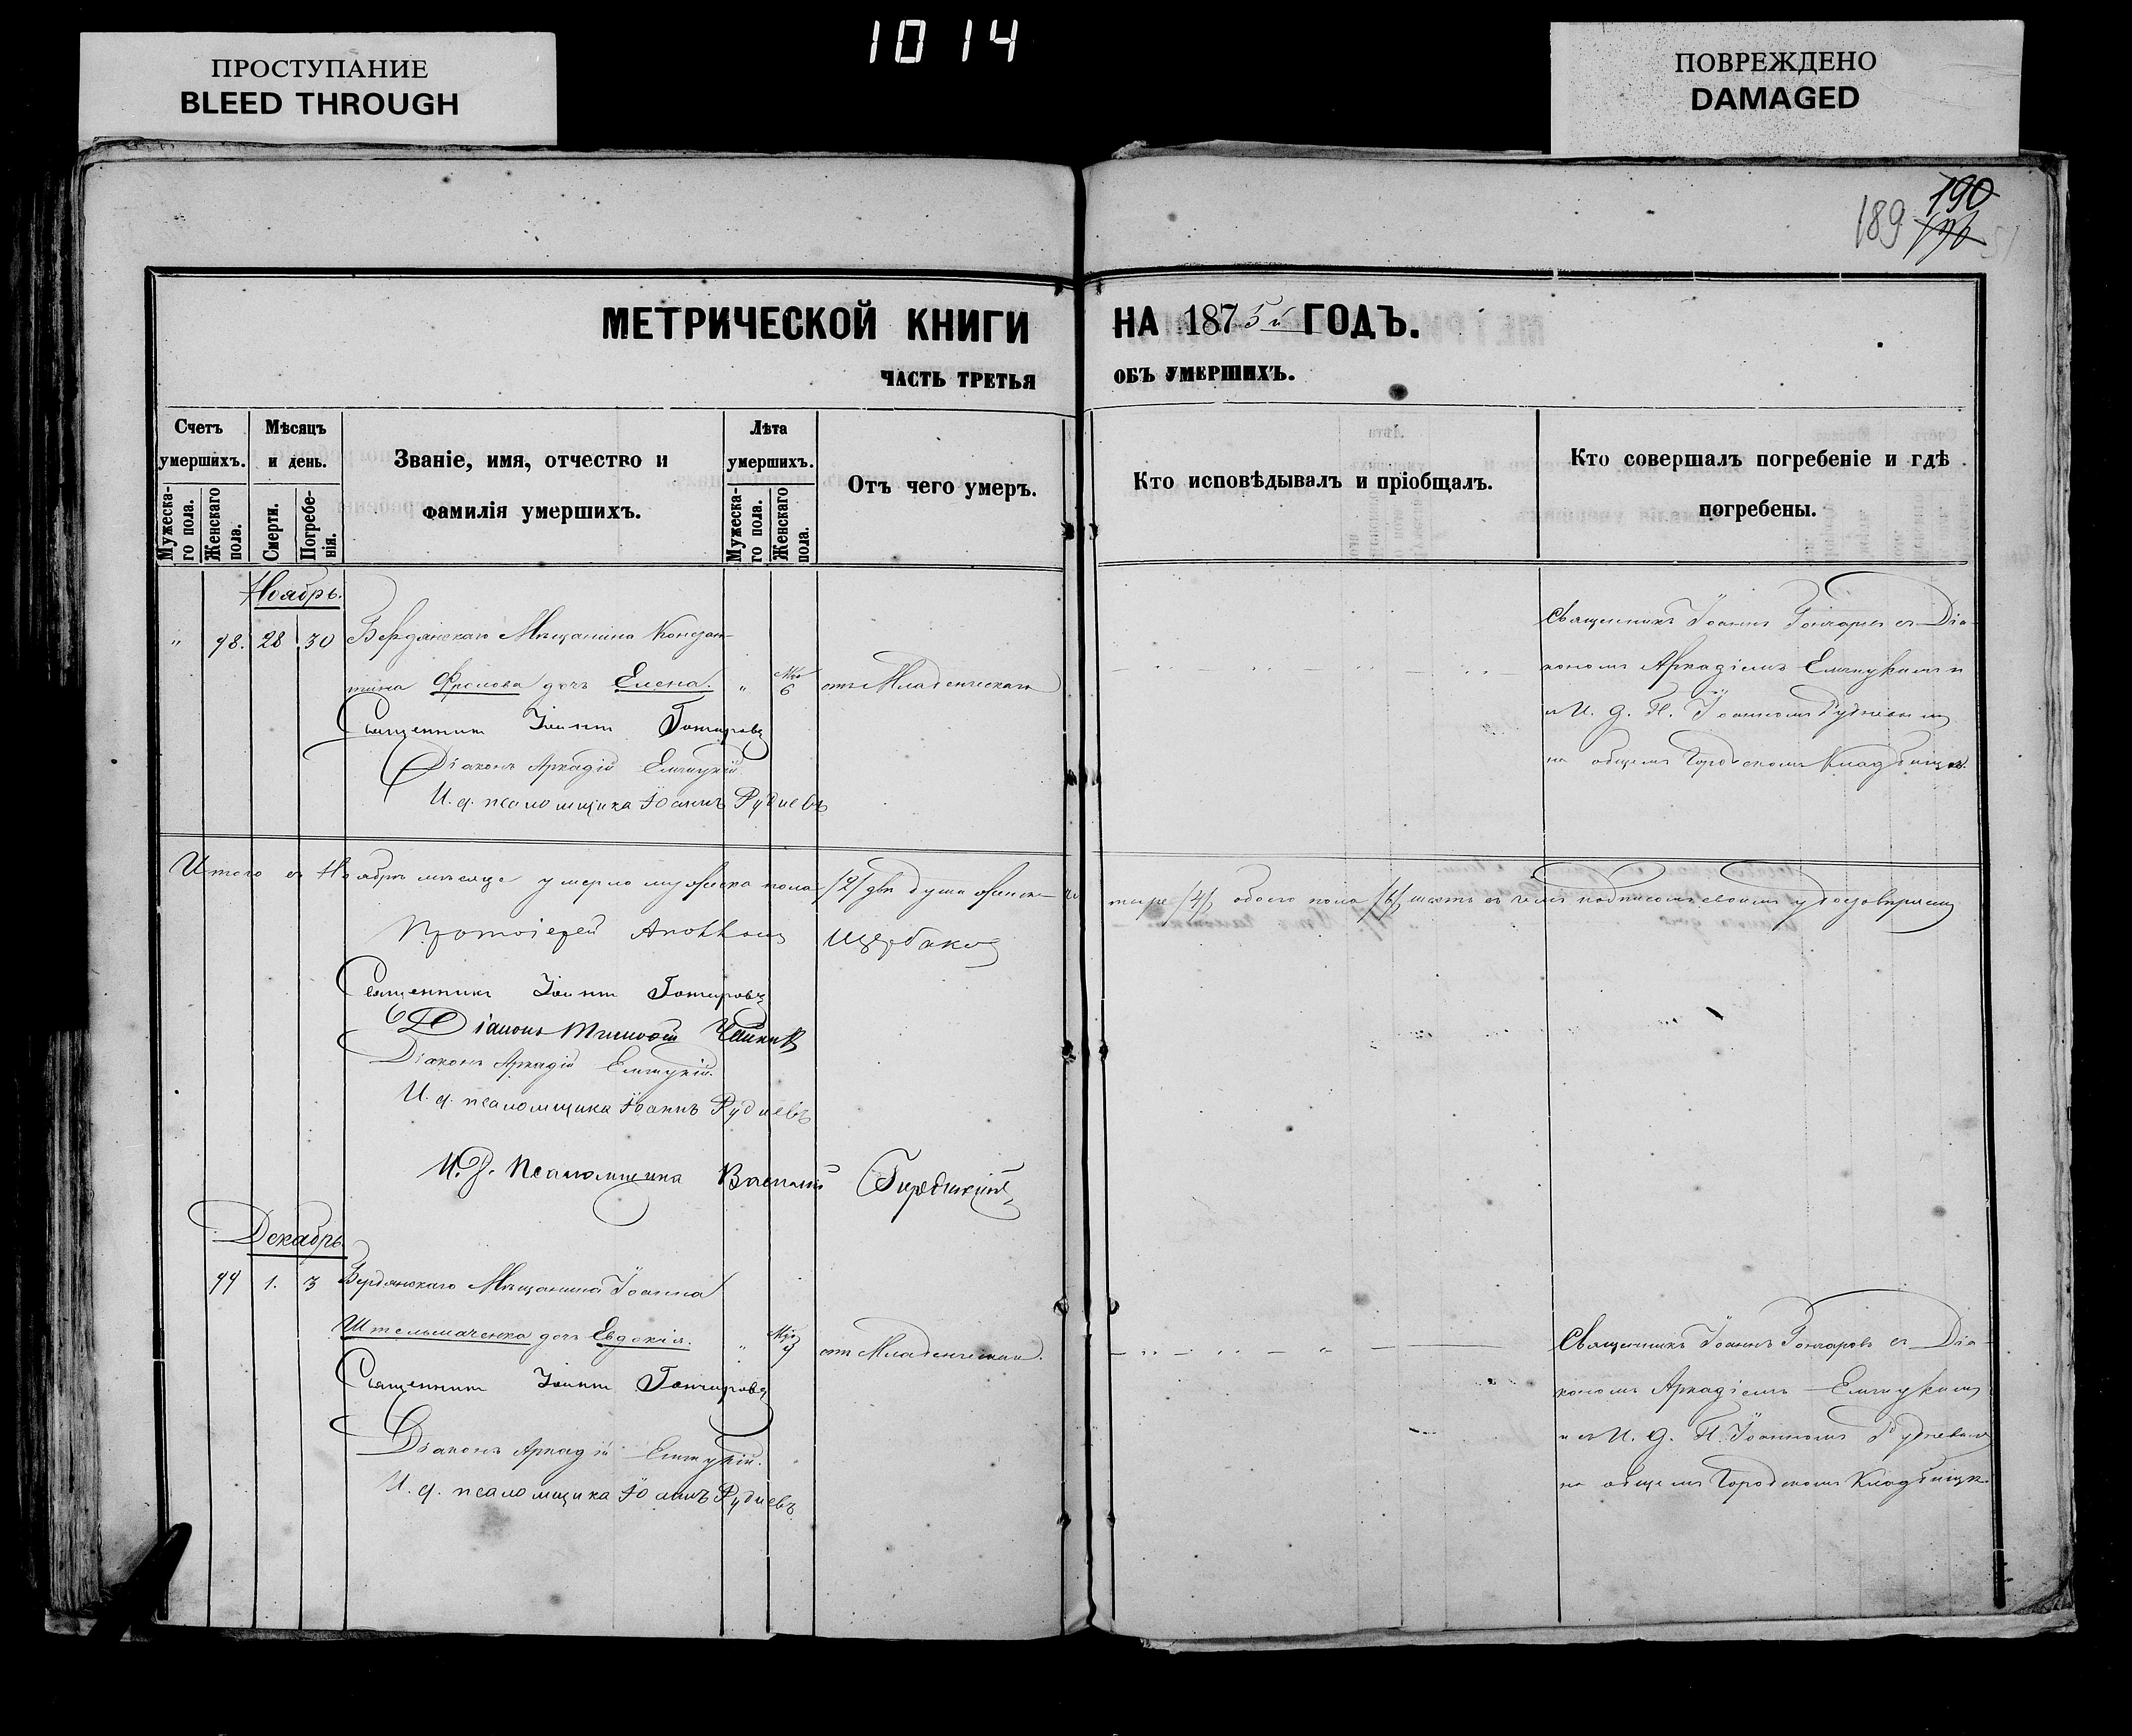 1014
ПРОСТУПАНИЕ
BLEED THROUGH
ПОВРЕЖДЕНО
DAMAGED
190
189
МЕТРИЧЕСКОЙ КНИГИ НА 1875й ГОДЪ.
ЧАСТЬ ТРЕТЬЯ ОБЪ УМЕРШИХЪ.
Счетъ умершихъ.
Мужескаго пола.
Женскаго пола.
Мѣсяцъ и день.
Смерти.
Погребенія.
Званіе, имя, отчество и
фамилія умершихъ.
Лѣта умершихъ.
Мужескаго пола.
Женскаго пола.
Отъ чего умеръ.
Кто исповѣдывалъ и пріобщалъ.
Кто совершалъ погребеніе и гдѣ
погребены.
Ноябрь.
" 98. 28 30 Бердянскаго Мѣщанина Констан-
тина Фролова дочь Елена. " 6 отъ Младенческой
Священникъ Іоаннъ Гончаровъ
Діаконъ Аркадій
И. д. псаломщика Іоаннъ Рудневъ
Священникъ Іоаннъ Гончаровъ съ Діа-
кономъ Аркадіемъ и
съ И. д. П. Іоанномъ Рудневымъ
на общемъ Городскомъ Кладбищѣ.
Итого въ Ноябрѣ мѣсяцѣ умерло мужеска пола /2/ двѣ души женска че
тыре /4/ обоего пола /6/ шесть въ чемъ подписомъ своимъ удостовѣряемъ
Протоіерей Щербаковъ
Священникъ Іоаннъ Гончаровъ
Діаконъ
Діаконъ Аркадій
И. д. псаломщика Іоаннъ Рудневъ
И. д. Псаломщика Василій
Декабрь.
99 1. 3 Бердянскаго Мѣщанина Іоанна
Штельмаченка дочь Евдокія. " отъ Младенческой.
Священникъ Іоаннъ Гончаровъ
Діаконъ Аркадій
И. д. псаломщика Іоаннъ Рудневъ
Священникъ Іоаннъ Гончаровъ съ Діа-
кономъ Аркадіемъ
и съ И. д. П. Іоанномъ Рудневымъ
на общемъ Городскомъ Кладбищѣ.